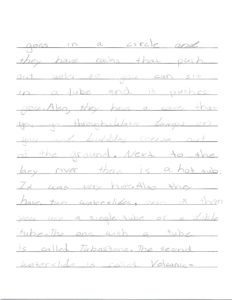 goes in a circle and
they have and that push
out water so you can sit
in a tube and it pushes
you. Also, they have a cave that
you and bubbles come out
of the ground. Next to the
lazy river there is a hot tub
It was way hot. Also they
have two waterslides, you
you use a single tube or a duble
tube. The one with a tube
is called Tubastone. The second
waterslide is called Volcano.